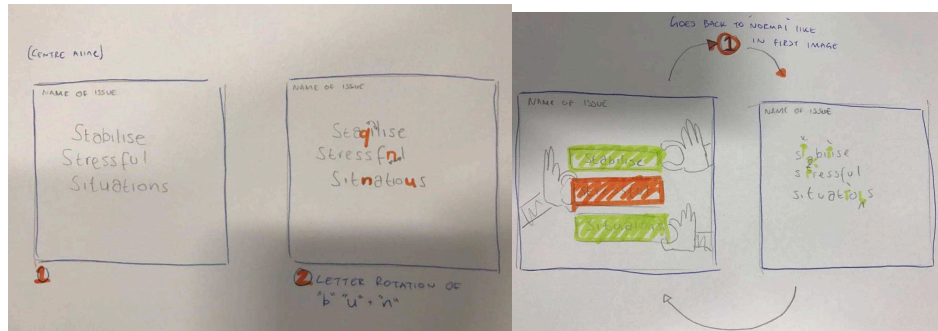 (CENTRE ALIGN)
NAME OF ISSUE
Stabilise
Stressful
Situations
1
NAME OF ISSUE
Staqilise
Stressfnl
Sitnatious
2 LETTER ROTATION OF
"b" "u" + "n"
GOES BACK TO 'NORMAL' LIKE
1 IN FIRST IMAGE
NAME OF ISSUE
Stabilise
Situations
NAME OF ISSUE
stabilise
stressful
situations